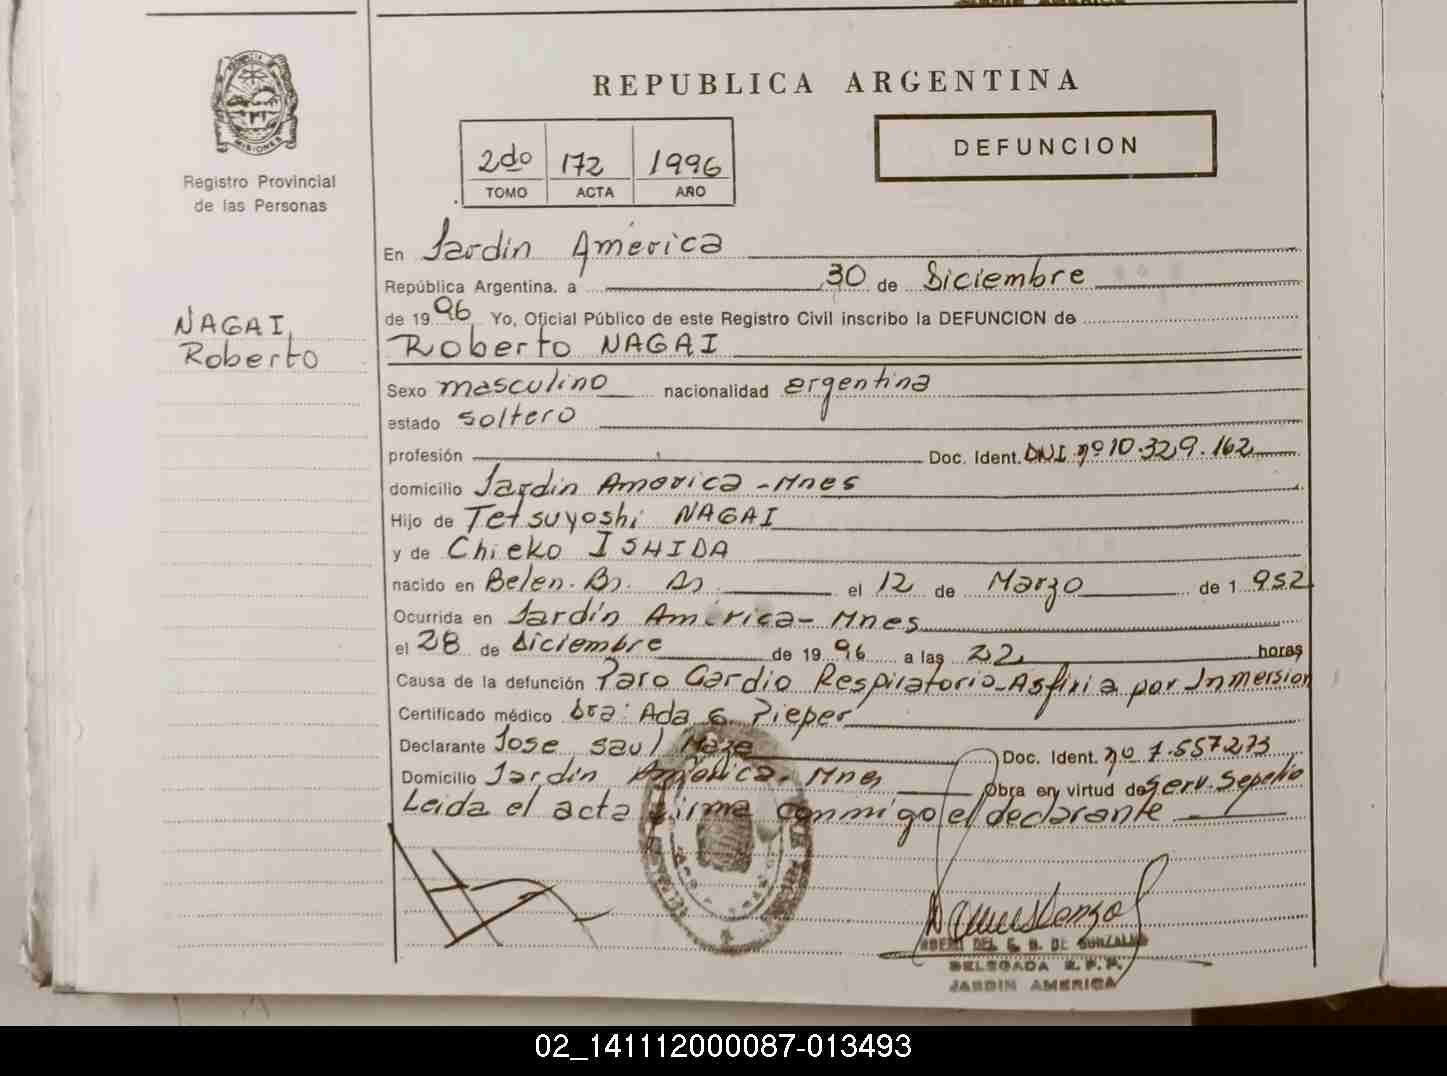 REPUBLICA ARGENTINA
DEFUNCION
2do 172 1996
TOMO ACTA AÑO
PROVINCIA DE MISIONES
Registro Provincial
de las Personas
NAGAI,
Roberto
En Jardin América
República Argentina, a 30 de Diciembre
de 1996 Yo, Oficial Público de este Registro Civil inscribo la DEFUNCION de
Roberto NAGAI
Sexo masculino nacionalidad argentina
estado soltero
profesión Doc. Ident. DNI nº 10.329.162
domicilio Jardin America - Mnes
Hijo de Tetsuyoshi NAGAI
y de Chieko ISHIDA
nacido en Belen. Bs. As el 12 de Marzo de 1.952
Ocurrida en Jardín América - Mnes
el 28 de diciembre de 1996 a las 22 horas
Causa de la defunción Paro Cardio Respiratorio - Asfixia por Inmersion
Certificado médico dra: Ada G. Pieper
Declarante Jose saul Maze Doc. Ident. nº 7.557.273
Domicilio Jardin América. Mnes Obra en virtud de Serv. Sepelio
Leida el acta firma conmigo el declarante
DE GONZALEZ
DELEGADA R.P.P.
JARDIN AMERICA
02_141112000087-013493